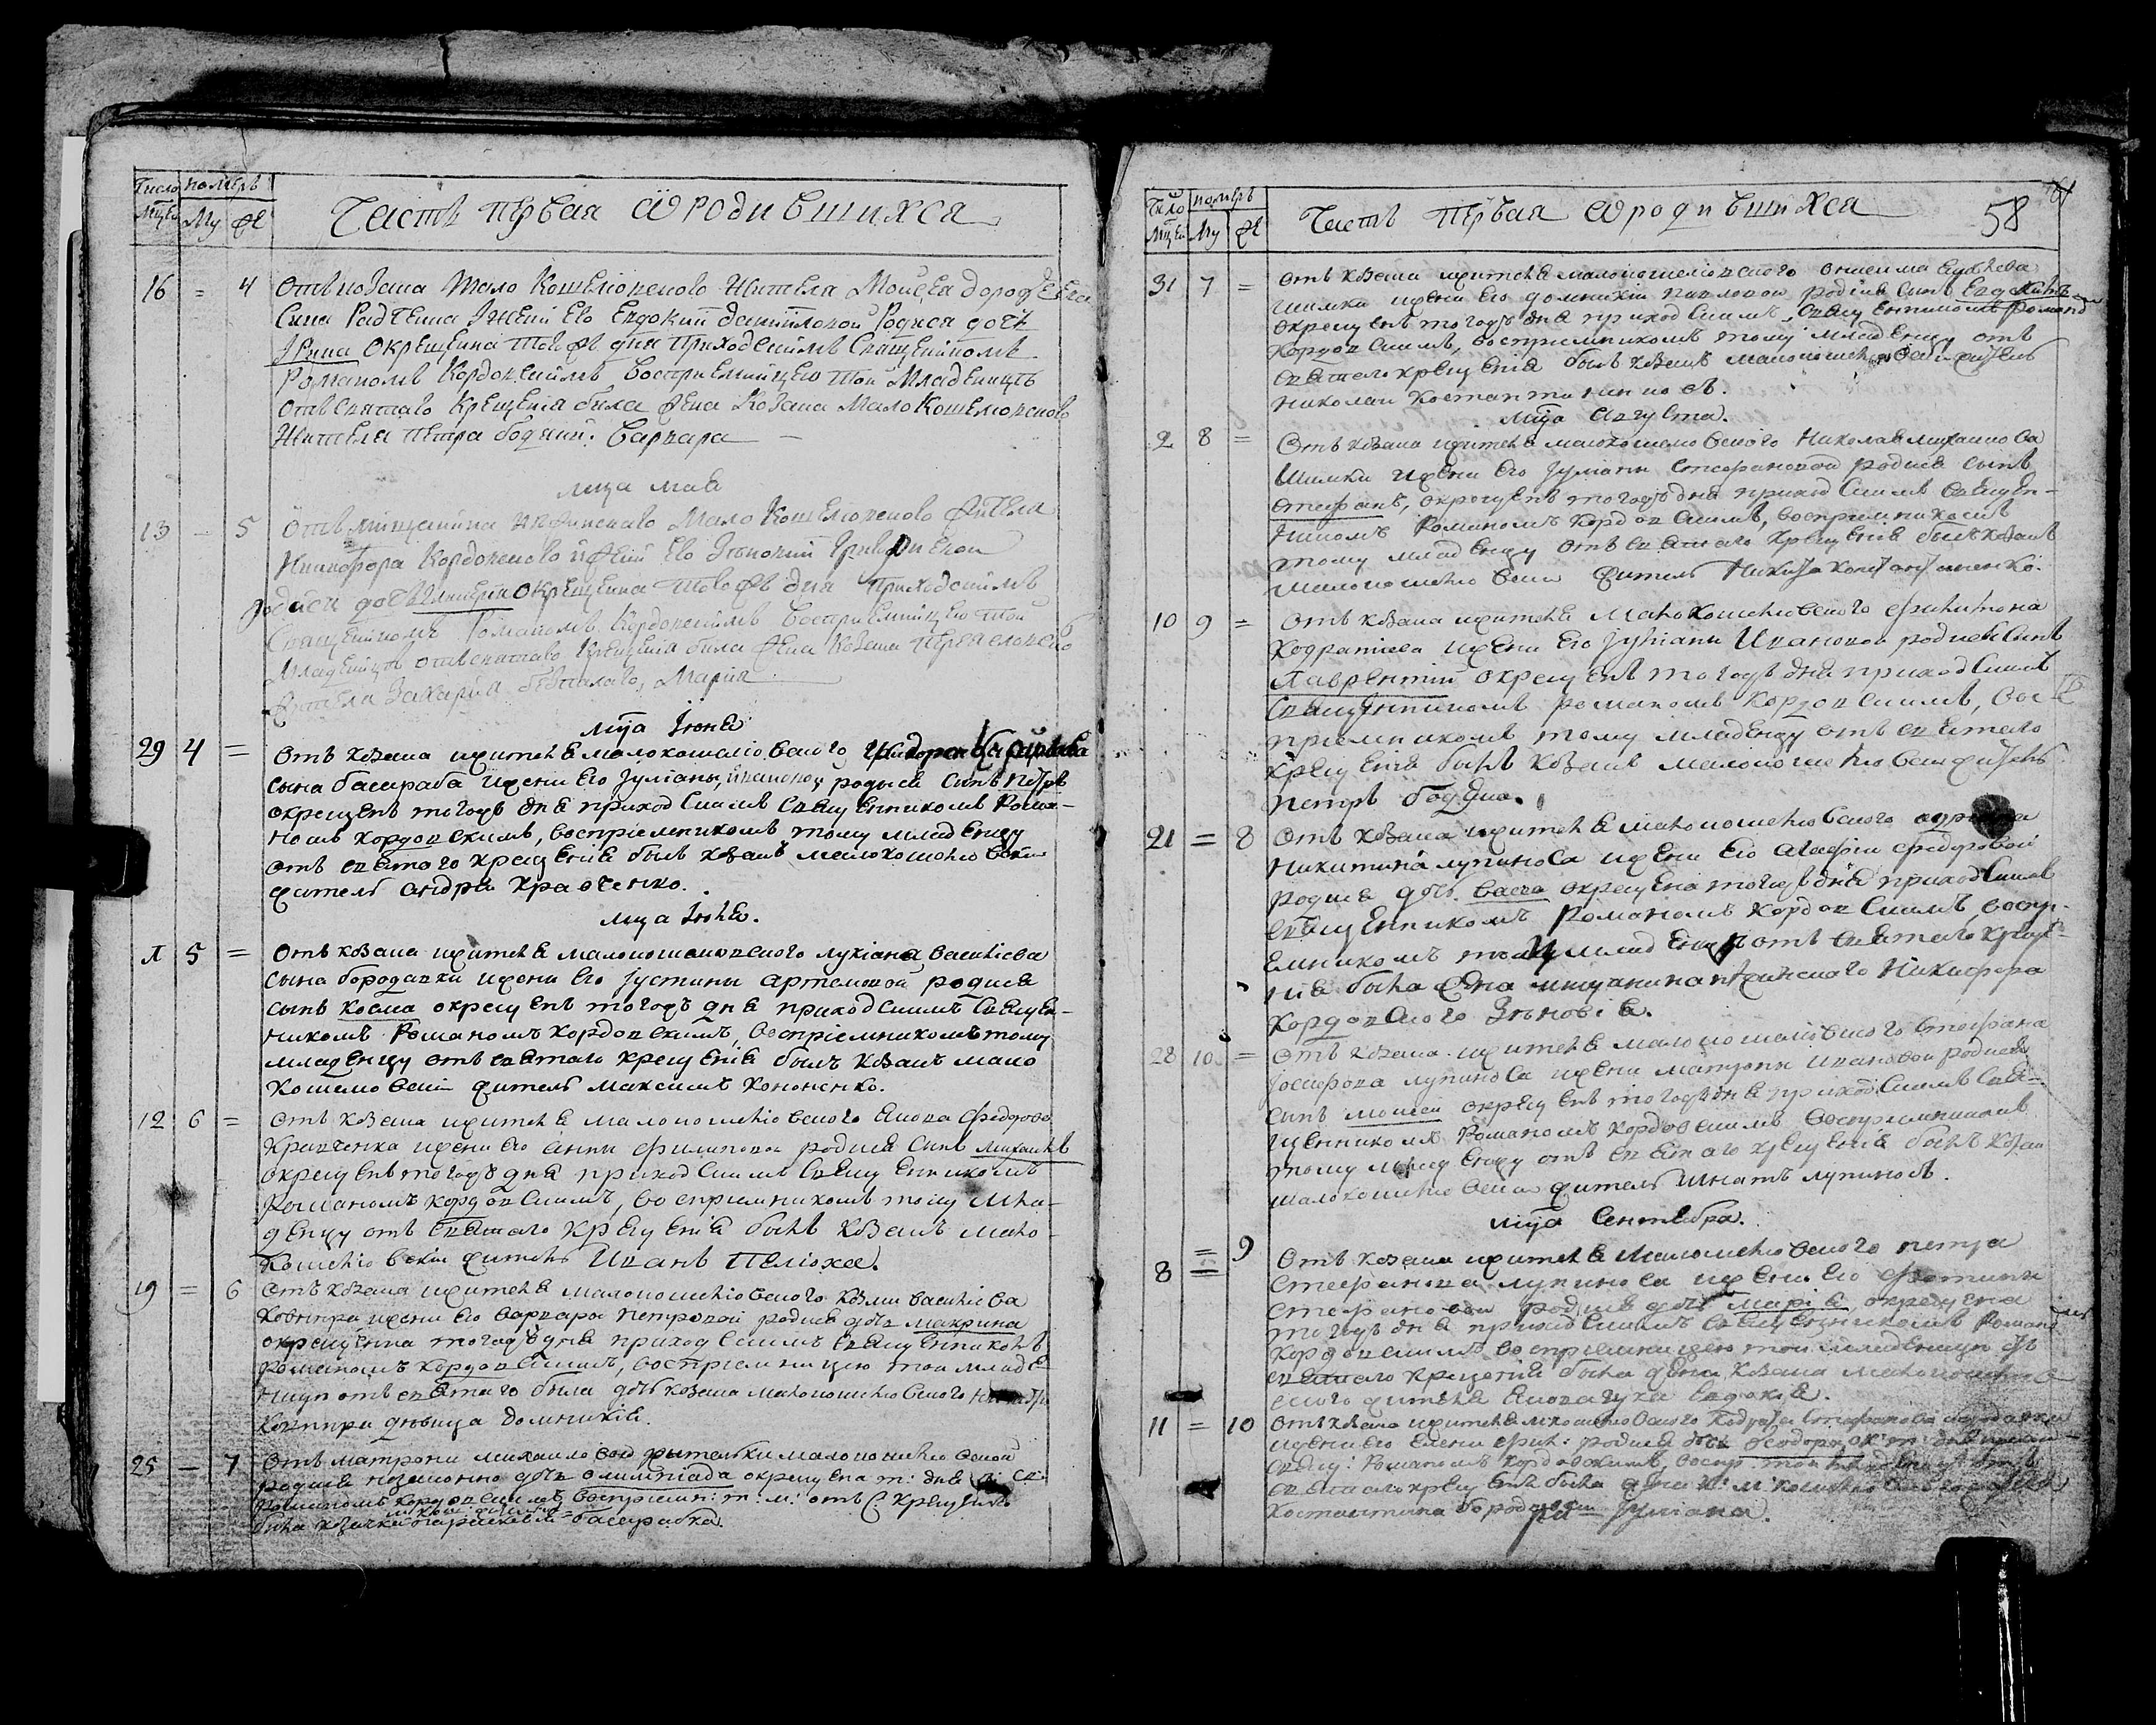 Число номеръ
Мцей Му Же
Часть первая ѿ родившихся
16 = 4 Отъ козака Мало Кошелювского Жителя Мойсея Дорофеева
Сина Радченка Iжени Его Евдокии Данииловой Родися дочъ
Iрина Окрещенна Того Же дня Приходскимъ Священникомъ
Романомъ Кордовскимъ Восприемницею Той Младеницъ
Отъ Святаго Крещенiя была Жена Козака Мало Кошелювского
Жителя Петра Бодяки: Варвара
мца мая
13 - 5 Отъ мищанина Нежинскаго Мало Кошелювского Жителя
Никифора Кордовского и Жени Его Зѣновии
родися дочъ окрещенна Того Же дня Приходскимъ
Священникомъ Романомъ Кордовскимъ Восприемницею Той
Младеницъ отъ святаго Крещенiя была Жена Козака
Жителя Захарiя Марiя
мца Iюня
29 4 = Отъ козака жителя малокошелювского
сына басараба жени его Iулiаны, Ивановой родися сынъ Петръ
окрещенъ тогожъ дня приходскимъ священникомъ Рома-
номъ кордовскимъ, воспрiемникомъ тому младенцу
отъ святого крещенiя былъ козакъ малокошелювский
житель андрей кравченко.
мца Iюля.
л 5 = Отъ козака жителя малокошелювского лукiяна василiева
сына бородавки жени его Iустины артемовой родися
сынъ косма окрещенъ тогожъ дня приходскимъ священ-
никомъ Романомъ кордовскимъ, воспрiемникомъ тому
младенцу отъ святаго крещенiя былъ козакъ мало
кошелювский житель максимъ кононенко.
12 6 = Отъ козака жителя малокошелювского Якова федорова
Кравченка жени его анны филиповой родися сынъ михаилъ
окрещенъ тогожъ дня приходскимъ священникомъ
Романомъ кордовскимъ, воспрiемникомъ тому мла-
денцу отъ святаго крещенiя былъ козакъ мало-
кошелювский житель Иванъ Пелюха.
19 = 6 Отъ козака жителя малокошелювского козми василiева
Ковтира жени его варвары петровой родися дочъ макрина
окрещенна тогожъ дня приходскимъ священникомъ
романомъ кордовскимъ, воспрiемницею той младе-
ници отъ святаго была дочъ козака малокошелювского
девица домникiя.
25 - 7 Отъ матроны михайловой жителки малокошелювской
родися незаконно дочъ олимпiада окрещена т: дня
Романомъ кордовскимъ воспрiемн: т: м: отъ С. крещенiя
была козачка параскевiя басарабка.
Число номеръ
Мцей Му Же
Часть первая ѿ родившихся 58
31 7 = Отъ козака жителя малокошелювского
Шимки жени его домникiи павловой родися сынъ Евдокимъ
окрещенъ тогожъ дня приходскимъ, священникомъ Романо
Кордовскимъ, воспрiемникомъ тому младенцу отъ
святаго крещенiя былъ козакъ малокошелювский житель
николай костантиновъ.
мца Августа.
2 8 = Отъ козака жителя малокошелювского Николая михайлова
Шимки жени его Iулiаны стефановой родися сынъ
стефанъ, окрещенъ тогожъ дня приходскимъ священ-
никомъ Романомъ кордовскимъ, воспрiемникомъ
тому младенцу отъ святаго крещенiя былъ козакъ
малокошелювский житель Никита
10 9 = Отъ козака жителя малокошелювского филимона
Кодратiева жени его Iулiаны Ивановой родися сынъ
Лаврентiй окрещенъ тогожъ дня приходскимъ
священникомъ романомъ кордовскимъ, вос
прiемникомъ тому младенцу отъ святаго
крещенiя былъ козакъ малокошелювский житель
петръ бодяка.
21 = 8 Отъ козака жителя малокошелювского
Никитина лупиноса жени его Агафiи федоровой
родися дочъ васса окрещена тогожъ дня приходскимъ
священникомъ Романомъ кордовскимъ воспр-
емникомъ младен отъ святаго креще-
нiя была жена мищанина нежинскаго Никифора
Кордовского Зѣновiя.
28 10 = Отъ козака жителя малокошелювского стефана
Iосифова лупиноса жени матроны ивановой родися
сынъ мойсей окрещенъ тогожъ дня приходскимъ свя-
щенникомъ Романомъ кордовскимъ воспрiемникомъ
тому младенцу отъ святаго крещенiя былъ козак
малокошелювский житель игнатъ лупиносъ.
мца Сентября.
8 = 9 Отъ козака жителя малокошелювского петра
стефанова лупиноса жени его фотинiи
стефановой родися дочъ марiя, окрещена
тогожъ дня приходскимъ священникомъ Романо
Кордовскимъ воспрiемницею той младеници отъ
святаго крещенiя была жена козака малокошелюв
ского жителя Якова Евдокiя.
11 = 10 Отъ козака жителя м:кошелювского Кодрата стефанова бородавки
жени его Елены фил: родися дочъ феодора, ок: т: дня прих-
свящ: Романомъ Кордовскимъ, воспр: той младеници отъ
святаго крещенiя была жена к: м: кошелювского жителя
Костантина бородавки Iулiана.